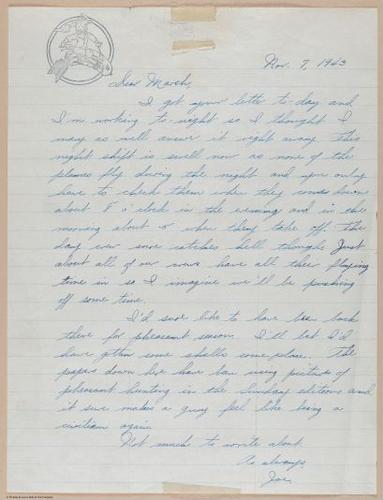 Nov. 7, 1943
Dear Marsh,
I got your letter to-day and
I'm working to-night so I thought I
may as well answer it right away. This
night shift is swell now as none of the
planes fly during the night and you only
have to check them when they come down
about 8 o'clock in the evening and in the
morning about 5 when they take off. The
day crew sure catches hell though. Just
about all of our crews have all their flying
time in so I imagine we'll be pushing
off some time.
I'd sure like to have been back
there for pheasant season. I'll bet I'd
have gotten some shells some place. The
papers down here have been using pictures of
pheasant hunting in the Sunday editions and
it sure makes a guy feel like being a
civilian again.
Not much to write about.
As always,
Joe